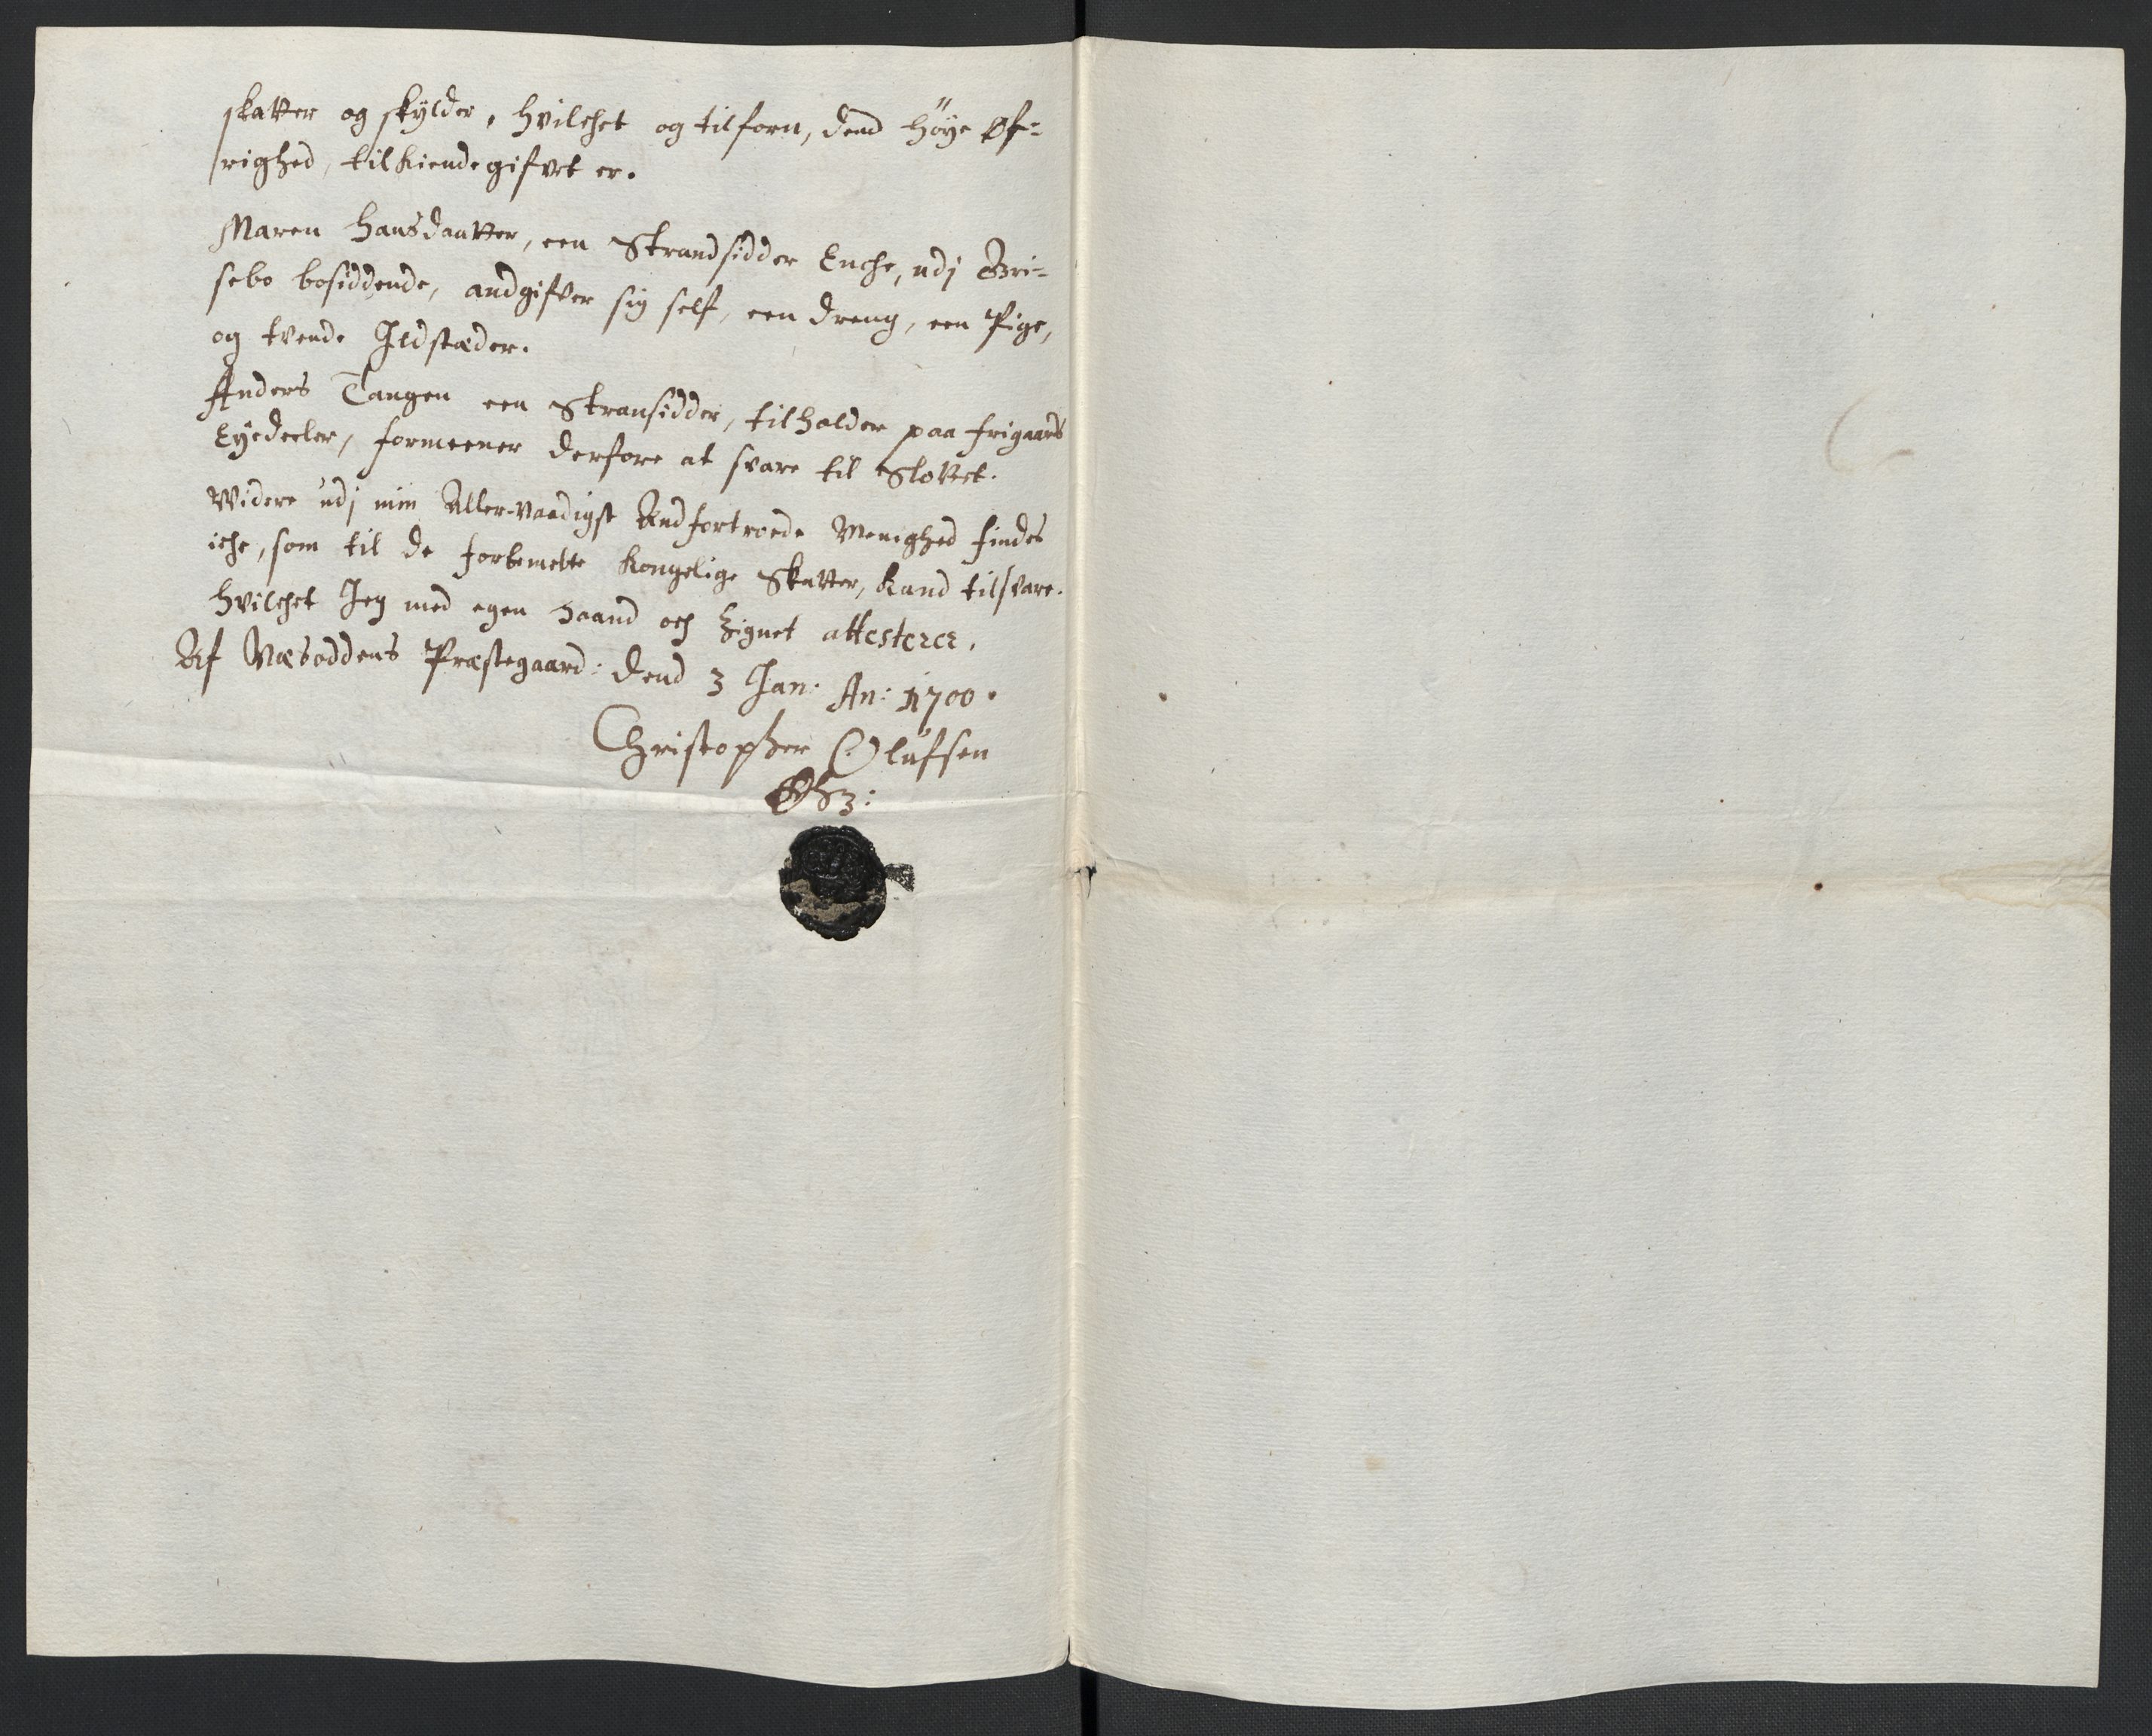 skatter og skylder, hvilchet og tilforn, dend høÿe Øf-
righed, tilkiendegifvet er.
Maren Hansdaatter, een Strandsidder Enche, udj Gri-
sebo bosiddende, andgifver sig self, een dreng, een Pige,
og tvende Ildstæder.
Anders Tangen een Stransidder, tilholder paa frigaards
Eÿedeeler, formeener derfore at svare til Slottet.
Widere udj min Aller-Naadigst Andfortroede Menighed findes
iche, som til de forbemelte Kongelige Skatter, kand tilsvare.
Hvilchet Jeg med egen haand och Zignet attesterer.
Af Næsoddens Præstegaard: dend 3 Jan: An: 1700.
Christopher Olufsen